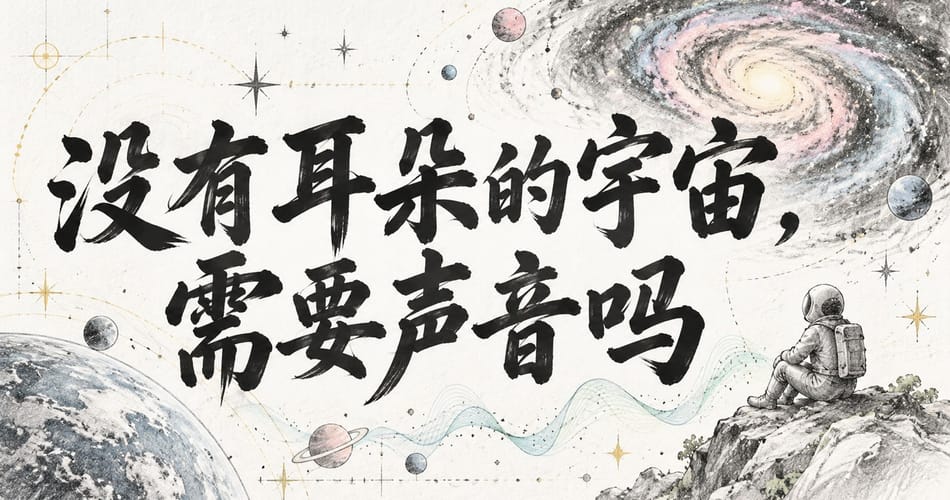 没有耳朵的宇宙，
需要声音吗